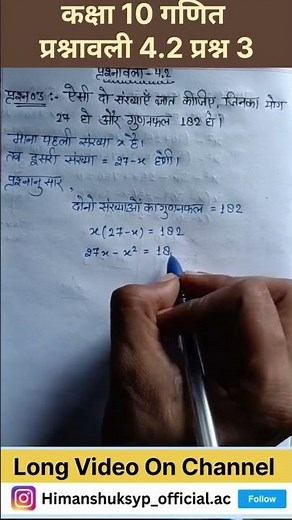 कक्षा 10 गणित
प्रश्नावली 4.2 प्रश्न 3
प्रश्नावली - 4.2
प्रश्न 03 :- ऐसी दो संख्याएँ ज्ञात कीजिए, जिनका योग
27 हो और गुणनफल 182 हो।
माना पहली संख्या x है।
तब दूसरी संख्या = 27-x होगी।
प्रश्नानुसार,
दोनो संख्याओं का गुणनफल = 182
x(27-x) = 182
27x - x² = 18
Long Video On Channel
Himanshuksyp_official.ac
Follow